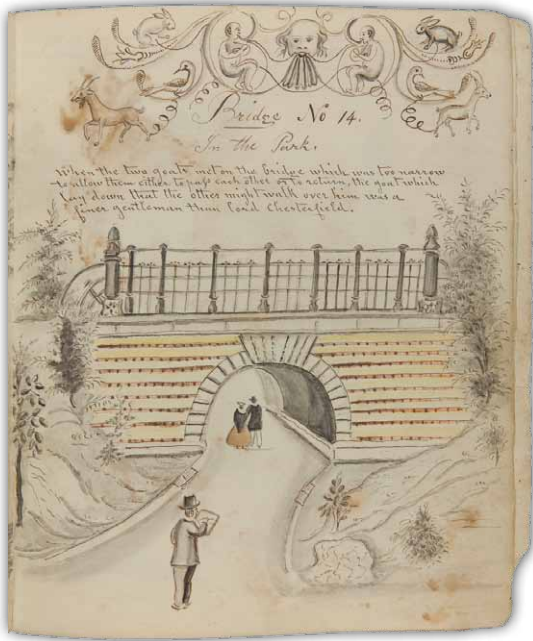 Bridge No 14.
In the Park.
When the two goats met on the bridge which was too narrow
to allow them either to pass each other or to return, the goat which
lay down that the other might walk over him was a
finer gentleman than Lord Chesterfield.